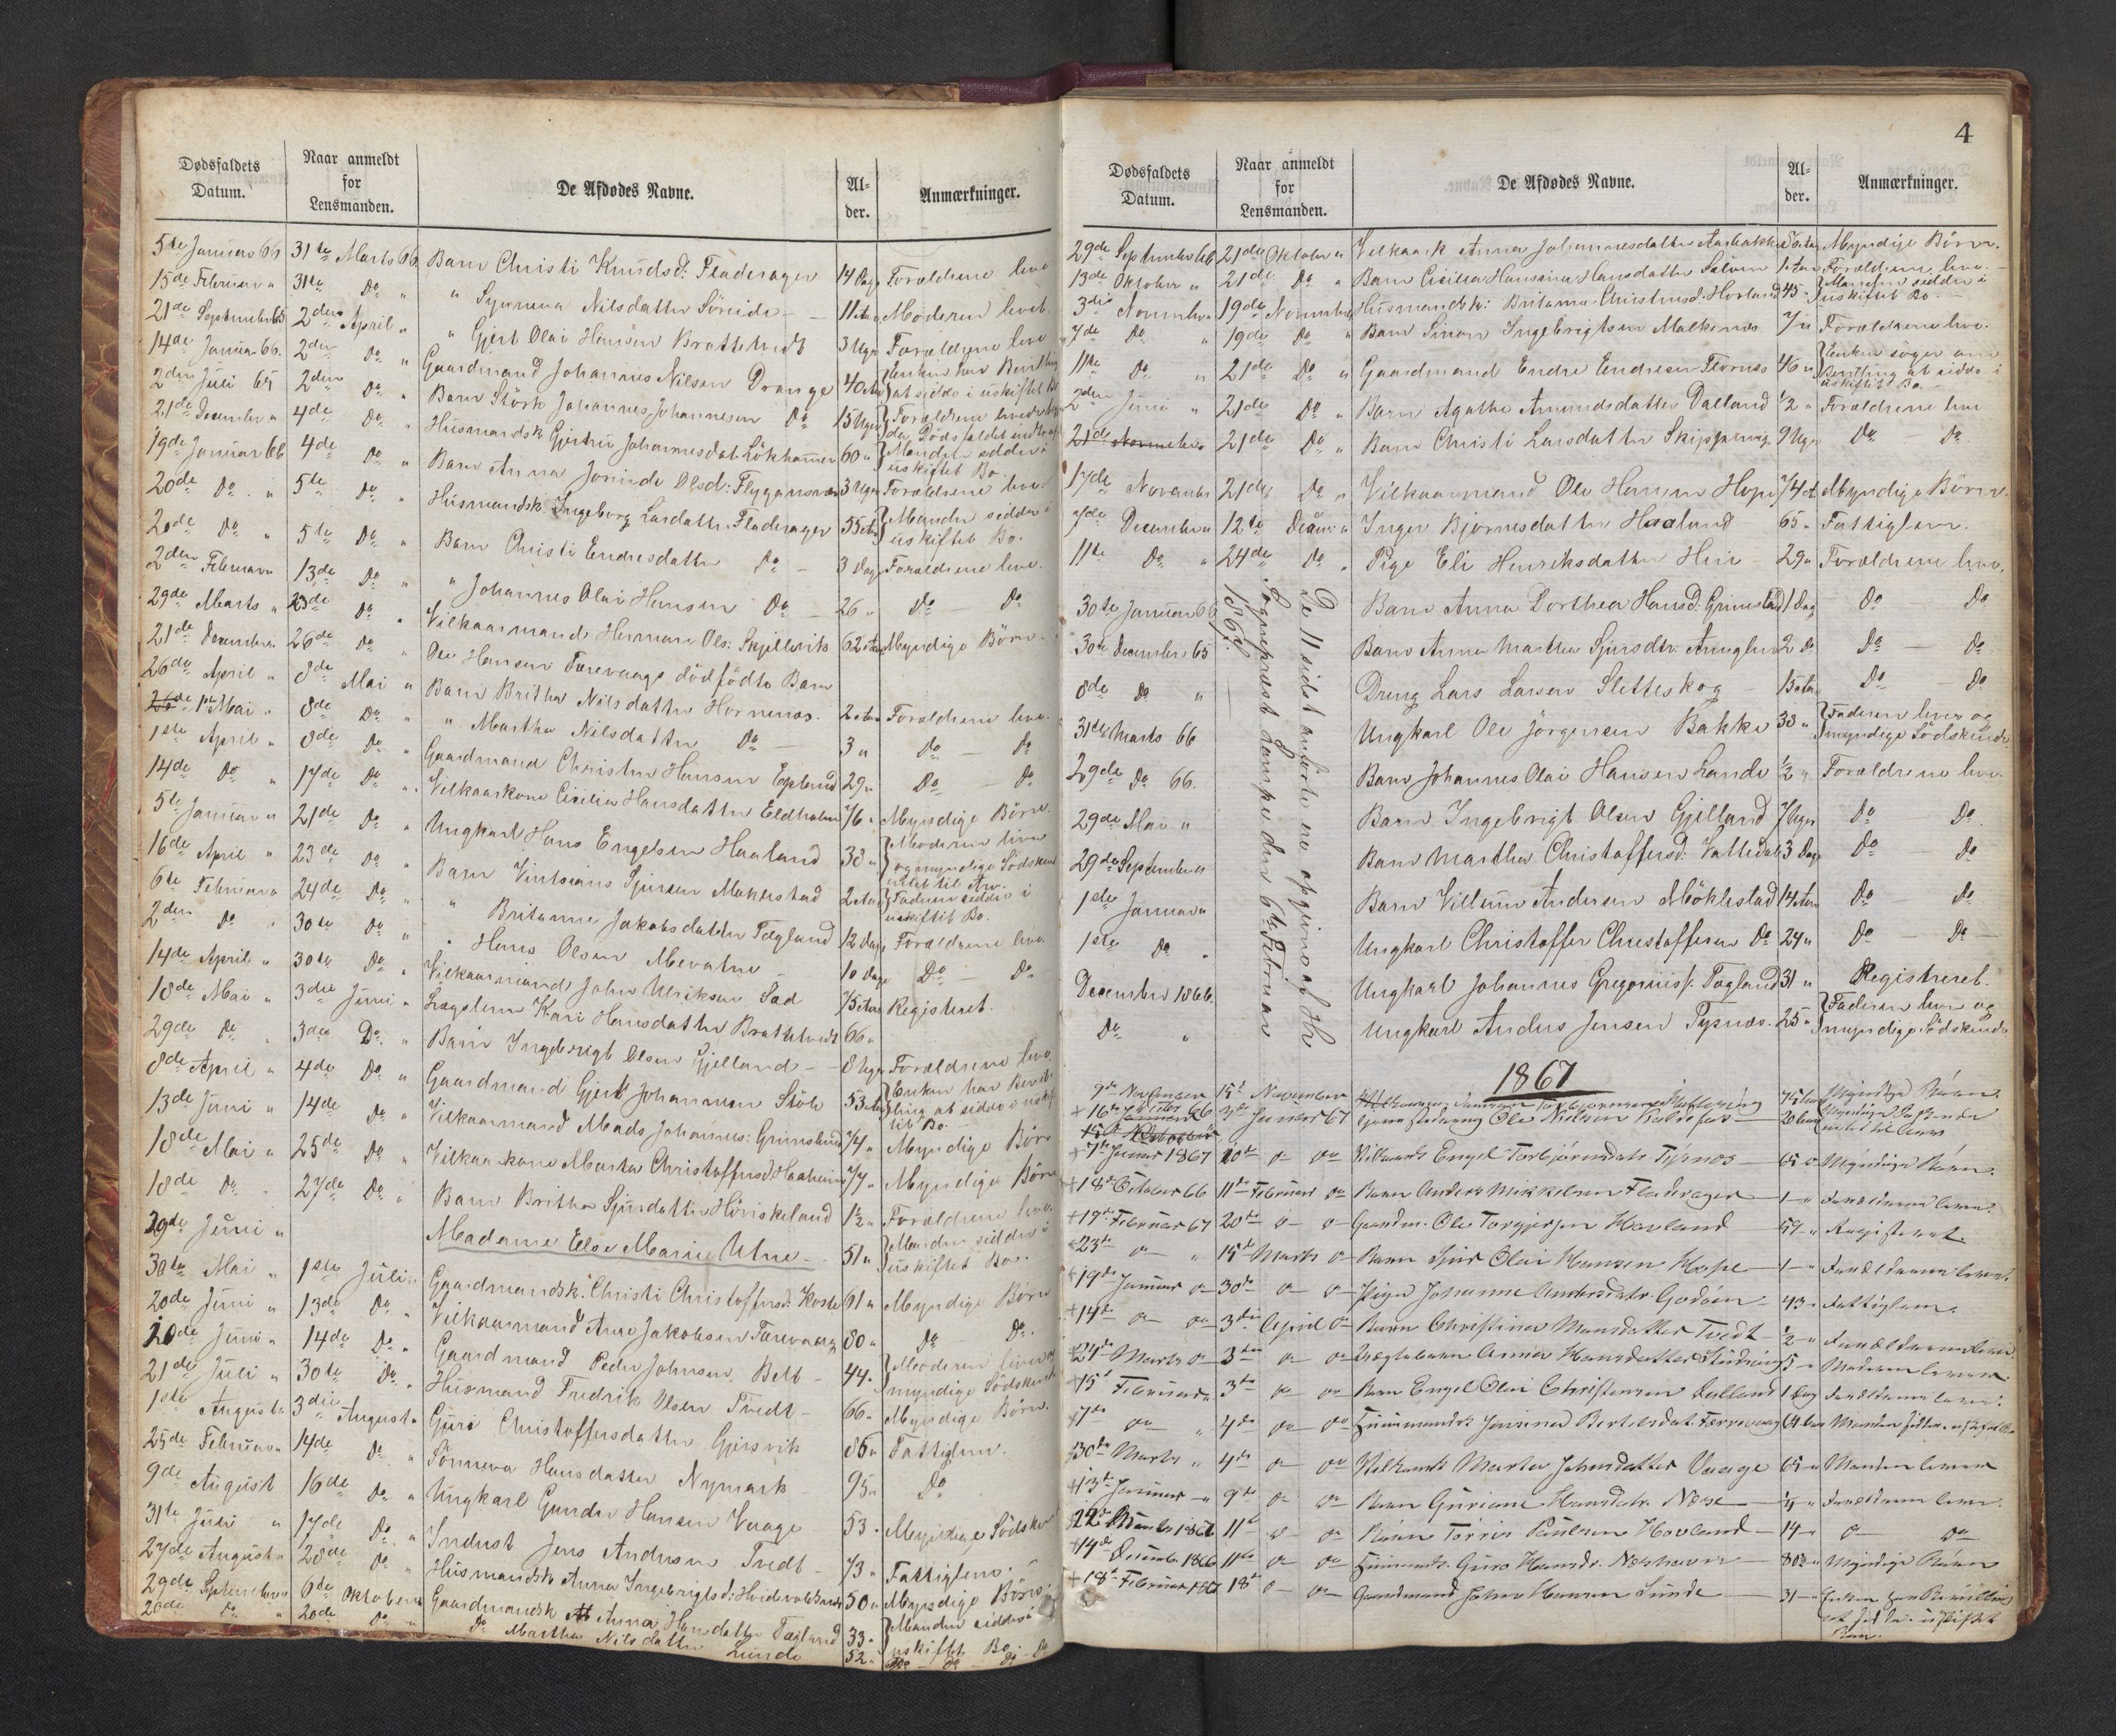 Dødsfaldets Datum.
Naar anmeldt for Lensmanden.
De Afdødes Navne.
Al-der.
Anmærkninger.
5te Januar 66 31te Marts 66 Barn Christi Knudsd: Fladerager 14 Dage Forældrene leve
15de Februar " 31te Do " " Synneva Nilsdatter Söreide 11 Aar Moderen levet.
21de September 65 2den April " " Gjert Olai Hansen Brattetvedt 3 Uger Forældrene leve
14de Januar 66. 2den Do " Gaardmand Johannes Nilsen Drange 40 Aar Enken har Bevilling at sidde i uskiftet Bo
2den Juli 65 2den Do " Barn Störk Johannes Johannesen Do 15 Uger Forældrene
21de December " 4de Do " Husmandsk Gjertru Johannesdat. Lökhammer 60 " Manden sidder i uskiftet Bo.
19de Januar 66 4de Do " Barn Anna Olsd: Flygansvær 3 Uger Forældrene leve
20de Do " 5te Do " Husmandsk: Ingeborg Larsdatter Fladerager 55 Aar Manden sidder i uskiftet Bo.
20de Do " 5te Do " Barn Christi Endresdatter Do 3 Dage Forældrene leve.
2den Februar 13de Do " " Johannes Olai Hansen Do 26 " Do Do
29de Marts " 23de Do " Vilkaarmand Herman Ols: Skjellevik 62 Aar Myndige Börn.
21de December 26de Do " Ole Hansen Tærevaage dödfödte Barn
26de April " 8de Mai " Barn Britha Nilsdatter Hornenæs. 2 Aar Forældrene leve.
1ste Mai " 8de Do " " Martha Nilsdatter Do 3 " Do Do
1ste April " 8de Do " Gaardmand Christen Hansen Epland 29 " Do Do
14de Do " 17de Do " Vilkaarkone Cicilia Hansdatter Eldholm 76 " Myndige Börn.
5te Januar " 21de Do " Ungkarl Hans Engelsen Haaland 38 " Moderen lever og myndige Södskende
16de April " 23de Do " Barn Sjursen Moklestad 2 Aar Faderen sidder i uskiftet Bo.
6te Februar " 24de Do " " Britanne Jakobsdatter Tægland 12 Dage Forældrene leve
2den Do " 30te Do " " Hans Olsen Mevatne 10 Dage Do Do
14de April " 30te Do " Vilkaarmand John Ulriksen Sæd 75 Aar Registeret.
18de Mai " 3die Juni " Lægslem Kari Hansdatter Brattetvedt 66 "
29de Do " 3die Do " Barn Ingebrigt Olsen Gjelland 8 Uger Forældrene leve
8de April " 4de Do " Gaardmand Gjert Johannesen Stöle 53 Aar Enken har Bevilling at sidde i uskiftet Bo
13de Juni " 14de Do " Vilkaarmand Mads Johannes: Grimsland 74 " Myndige Börn
18de Mai " 25de Do " Vilkaarkone Marta Christoffersd. 77 " Myndige Börn
18de Do " 27de Do " Barn Britha Sjursdatter Höviskeland 1½ " Forældrene leve
29de Juni " Madame Else Marie Utne 51 " Manden sidder i uskiftet Bo.
30te Mai " 1ste Juli " Gaardmandsk: Christi Christoffersd: Koste 61 " Myndige Börn
20de Juni " 13de Do " Vilkaarmand Jakobsen Tærevaag 80 " Do Do
20de Juni " 14de Do " Gaardmand Peder Johnsen Belt 44 " Moderen lever og myndige Södskende
21de Juli " 30te Do " Husmand Fredrik Olsen Tvedt 66 " Myndige Börn.
1ste August " 3die August " Guro Christoffersdatter Gjersvik 86 " Fattiglem.
25de Februar " 14de Do " Sönneva Hansdatter Nymark 95 " Do
9de August 16de Do " Ungkarl Gunder Hansen Vaage 53 " Myndige Södsken
31te Juli " 17de Do " Inderst Jens Andersen Tvedt 73 " Fattiglem.
27de August " 28de Do " Husmandsk Anna Ingebrigtsd: 50 " Myndige Börn
29de September 6te Oktober Gaardmandsk Anna Hansdatter Tægland 33 " Manden sidder i uskiftet Bo
20de Do " 20de Do " Do Martha Nilsdatter Lunde 52 " Do Do Do
4
Dødsfaldets Datum.
Naar anmeldt for Lensmanden.
De Afdødes Navne.
Al-der.
Anmærkninger.
29de September 66 21de Oktober " Velkaark Anna Johannesdatter Aarbakke Myndige Börn.
13de Oktober " 21de Do " Barn Cicilia Hansina Hansdatter Salvøen 1 Aar Forældrene leve.
3die November 19de November Husmandsk: Britanna Christensd. Hovland 45 " Manden sidder i uskiftet Bo.
7de Do " 19de Do " Barn Simon Ingebrigtsen Malkenæs 7 " Forældrene leve.
11te Do " 21de Do " Gaardmand Endre Endresen Flornes 46 " Enken söger om Bevilling at sidde i uskiftet Bo.
2den Juni " 21de Do " Barn Agathe Amundsdatter Dalland ½ " Forældrene leve
21de November 21de Do " Barn Christi Larsdatter Skippervig 9 Uger Do Do
17de November 21de Do " Vilkaarmand Ole Hansen Hope 74 A Myndige Börn.
7de December " 12te Decem: " Inger Bjornesdatter Haaland 65 " Fattiglem.
11te Do " 24de Do " Pige Eli Henriksdatter Hiie 29 " Forældrene leve.
30te Januar 66 Barn Anna Dorthea Hansd: Grimstad 1 Dag Do Do
30te December 65 Barn Anna Martha Sjursdtr. Aneglen 2 Do Do Do
8de Do " Dreng Lars Larsen Sletteskog 15 Aar Do Do
31te Marts 66 Ungkarl Ole Jörgensen Bakke 33 " Faderen lever og myndige Södskende
29de Do 66. Barn Johannes Olai Hansen Lande ½ " Forældrene leve.
29de Mai " Barn Ingebrigt Olsen Gjelland 7 Uger Do Do
29de September Barn Martha Christoffersd: Vattedal 3 Dage Do Do
1ste Januar " Barn Villum Andersen Möklestad 14 Aar Do Do
1ste Do " Ungkarl Christoffer Christoffersen Do 24 " Do Do
December 1866. Ungkarl Johannes Gregoriuss. Tægland 31 " Registreret.
Do " Ungkarl Anders Jensen Tysnæs. 25 " Faderen lever og myndige Södskende
De 11 sidst anførte ere opgivne af Hr
Sogneprest Lampe den 6te Februar
1867.
1867
9de November 15de November 75 Aar Myndige Børn.
+ 16de 66 3die Januar 67 Ole Nielsen 20 Aar Myndige Södskende
+ 7de Januar 1867 20de Do Vilkaarsk Engel Torbjörnsdatr. Tysnæs 65 " Myndige Børn.
+ 18de October 66 11te Februar Do Barn Anders Mikkelsen Fladerager 1 " Forældrene leve.
+ 19de Februar 67 20de Do Gaardm. Ole Torgjersen Hovland 59 " Registeret.
+ 23de Do " 15de Marts Do Barn Sjur Olai Hansen Hope 1 " Forældrene lever.
+ 19de Januar Do 30te Do Do Pigen Johanne Andersdatr. Godøen 43 " Fattiglem.
+ 14de Do Do 3die April Do Barn Christine Monsdatter Tvedt ½ " Forældrene lever.
+ 24de Marts Do 3die Do Do Lægdsbarn Anna Hansdatter 5 " Moderen lever.
+ 15de Februar " 3die Do Do Barn Engel Olai Christensen Dalland 1 Dag Forældrene lever.
+ 7de Do " 4de Do Do Husmandsk Bertelsdat. Færevaag 64 Aar Manden sidder i uskiftet Bo
+ 30te Marts " 4de Do Do Vilkaarsk Marta Johnsdatter Vaage 65 " Manden lever
+ 13de Januar " 9de Do Do Barn Guriane Hansdatr. Næse ¼ " Forældrene lever.
22de 1866 11te Do Do Barn Torris Paulsen Hovland 14 " Do Do
+ 14de December 1866 11te Do Do Husmandsk. Guro Hansdr. Neshavn 80 " Myndige Børn
+ 18de Februar 1867 18de Do Do Gaardmand John Hansen Sunde 31 " Enken har Bevilling at sidde i uskiftet Boe.